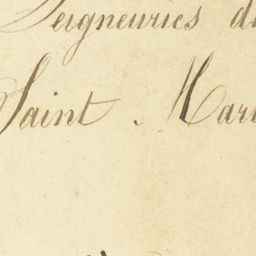 Seigneuries d
Saint. Mar